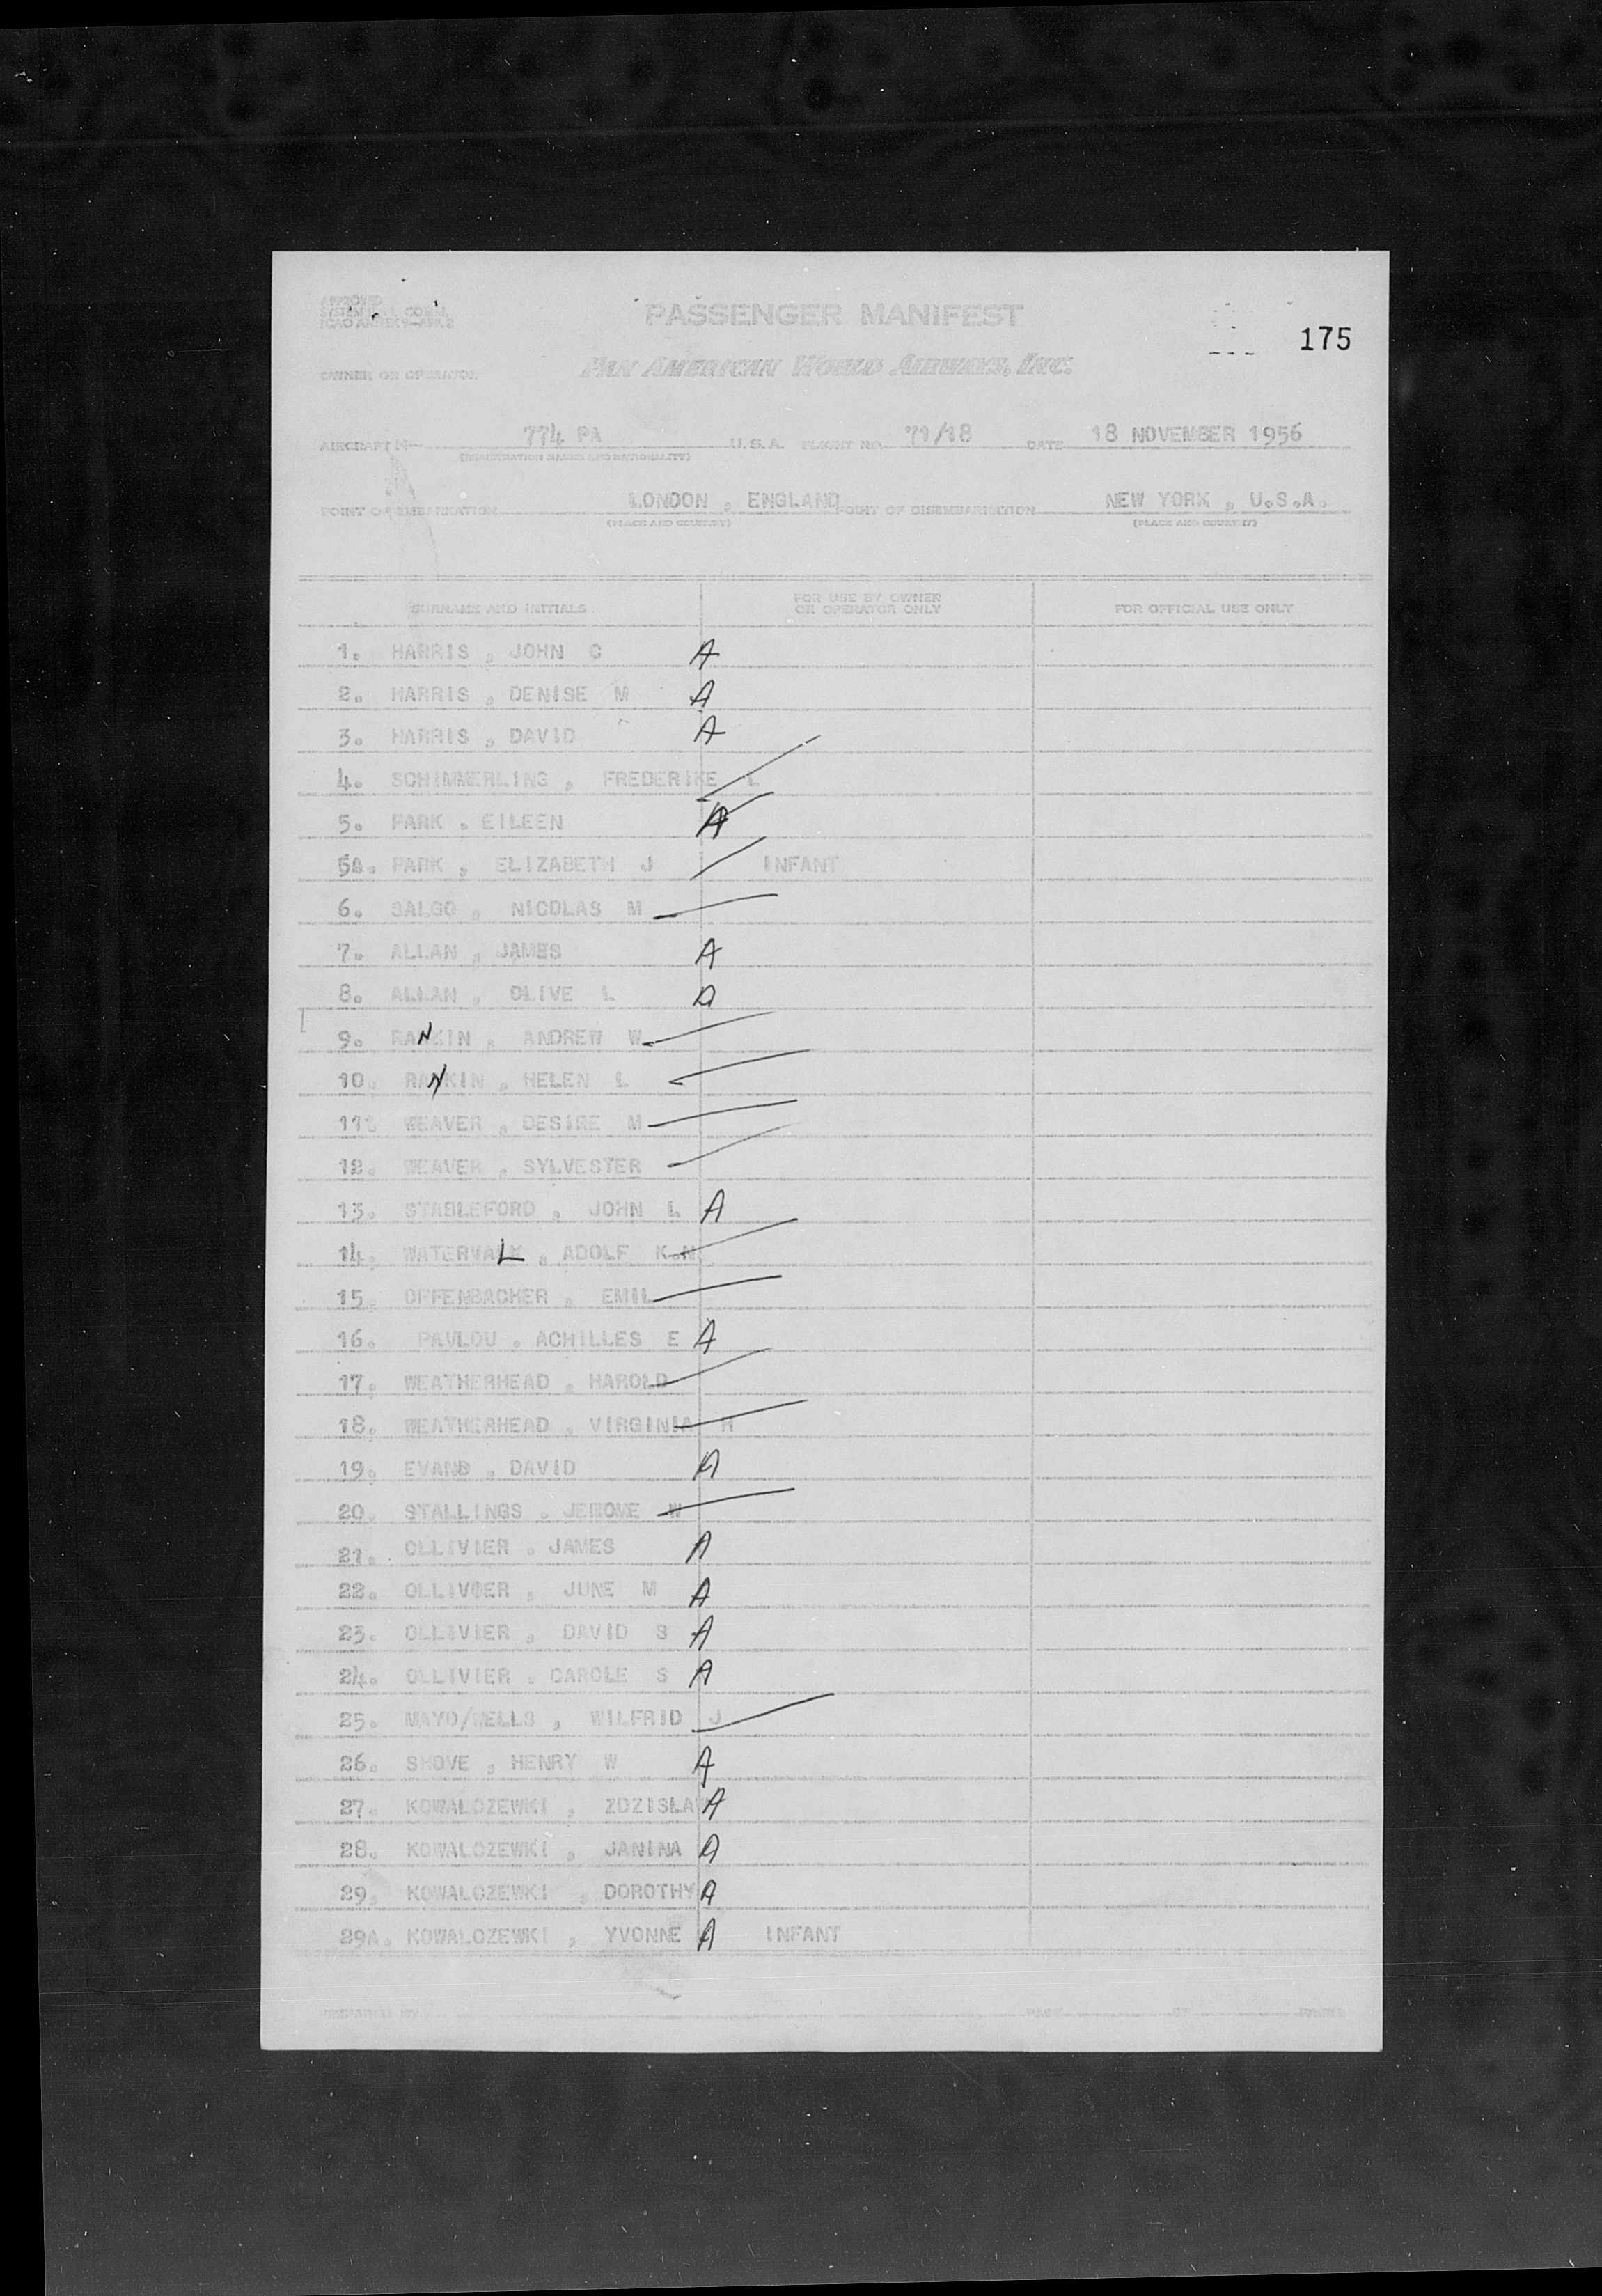 APPROVED
PASSENGER MANIFEST
175
PAN AMERICAN WORLD AIRWAYS, INC.
OWNER OR OPERATOR
AIRCRAFT N— 774 PA U.S.A. FLIGHT NO. 71/18 DATE 18 NOVEMBER 1956
(REGISTRATION MARKS AND NATIONALITY)
POINT OF EMBARKATION LONDON , ENGLAND POINT OF DISEMBARKATION NEW YORK , U.S.A.
(PLACE AND COUNTRY) (PLACE AND COUNTRY)
SURNAME AND INITIALS FOR USE BY OWNER OR OPERATOR ONLY FOR OFFICIAL USE ONLY
1. HARRIS , JOHN C A
2. HARRIS , DENISE M A
3. HARRIS , DAVID A
4. SCHIMMERLING , FREDERIKE L
5. PARK , EILEEN A
5A. PARK , ELIZABETH J INFANT
6. SALGO , NICOLAS M
7. ALLAN , JAMES A
8. ALLAN , OLIVE L A
9. RANKIN , ANDREW W
10. RANKIN , HELEN L
11. WEAVER , DESIRE M
12. WEAVER , SYLVESTER
13. STABLEFORD , JOHN L A
14. WATERVAL , ADOLF K.N
15. OFFENBACHER , EMIL
16. PAVLOU , ACHILLES E A
17. WEATHERHEAD , HAROLD
18. WEATHERHEAD , VIRGINIA H
19. EVANS , DAVID A
20. STALLINGS , JEROME W
21. OLLIVIER , JAMES A
22. OLLIVIER , JUNE M A
23. OLLIVIER , DAVID S A
24. OLLIVIER , CAROLE S A
25. MAYO/WELLS , WILFRID J
26. SHOVE , HENRY W A
27. KOWALCZEWKI , ZDZISLAW A
28. KOWALCZEWKI , JANINA A
29. KOWALCZEWKI , DOROTHY A
29A. KOWALCZEWKI , YVONNE A INFANT
PREPARED BY PAGE OF PAGES